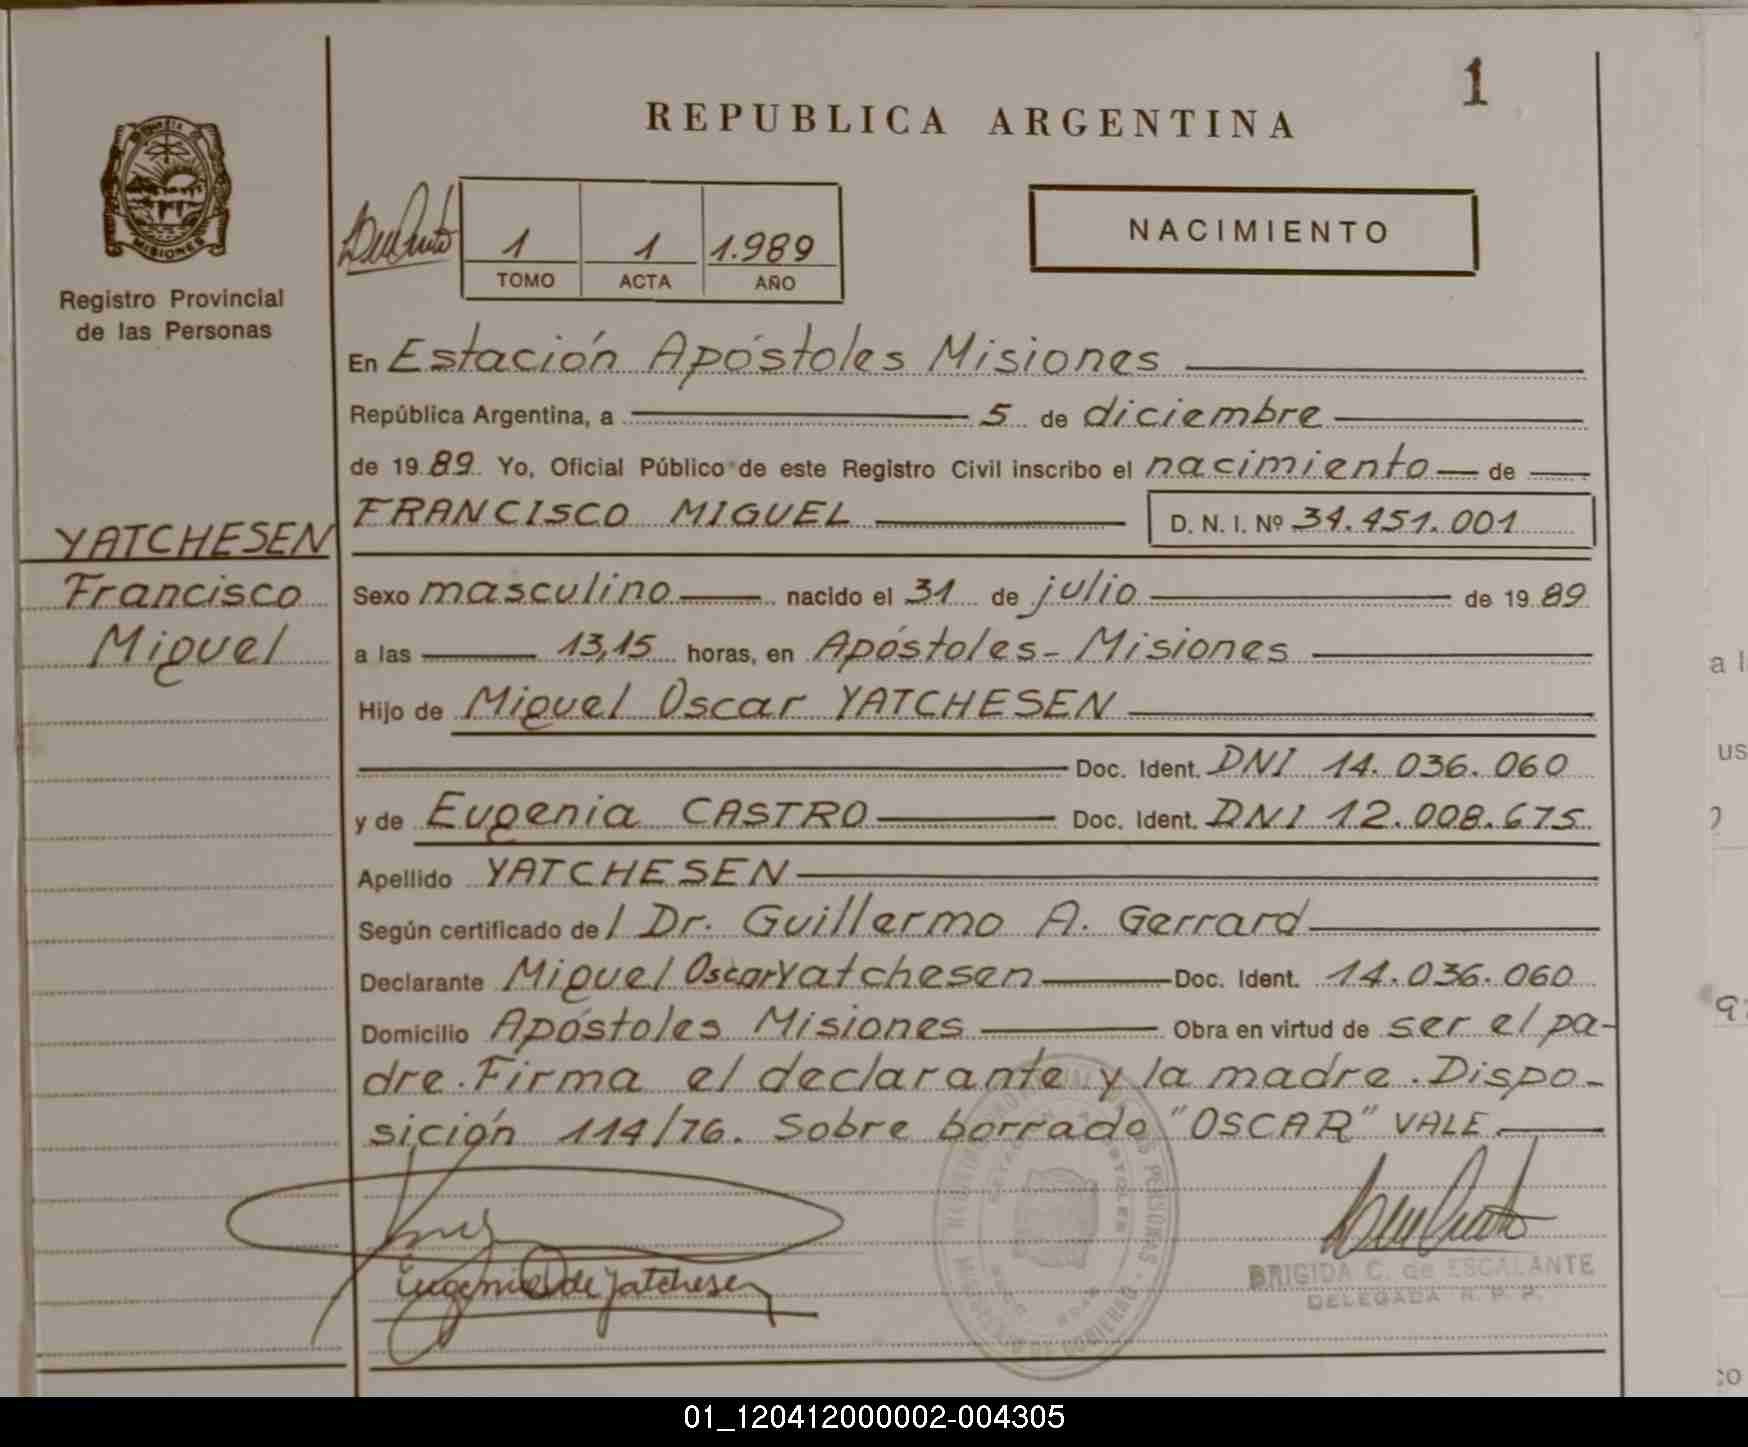 1
REPUBLICA ARGENTINA
MISIONES
Registro Provincial
de las Personas
1 1 1.989
TOMO ACTA AÑO
NACIMIENTO
En Estación Apóstoles Misiones
República Argentina, a 5 de diciembre
de 1989 Yo, Oficial Público de este Registro Civil inscribo el nacimiento de
YATCHESEN
Francisco
Miguel
FRANCISCO MIGUEL D. N. I. Nº 34.451.001
Sexo masculino nacido el 31 de julio de 1989
a las 13,15 horas, en Apóstoles - Misiones
Hijo de Miguel Oscar YATCHESEN
Doc. Ident. DNI 14.036.060
y de Eugenia CASTRO Doc. Ident. DNI 12.008.675
Apellido YATCHESEN
Según certificado de l Dr. Guillermo A. Gerrard
Declarante Miguel Oscar Yatchesen Doc. Ident. 14.036.060
Domicilio Apóstoles Misiones Obra en virtud de ser el pa-
dre. Firma el declarante y la madre. Dispo-
sición 114/76. Sobre borrado "OSCAR" VALE.
Eugenia C de Yatchesen
BRIGIDA C. de ESCALANTE
DELEGADA R. P. P.
01_120412000002-004305